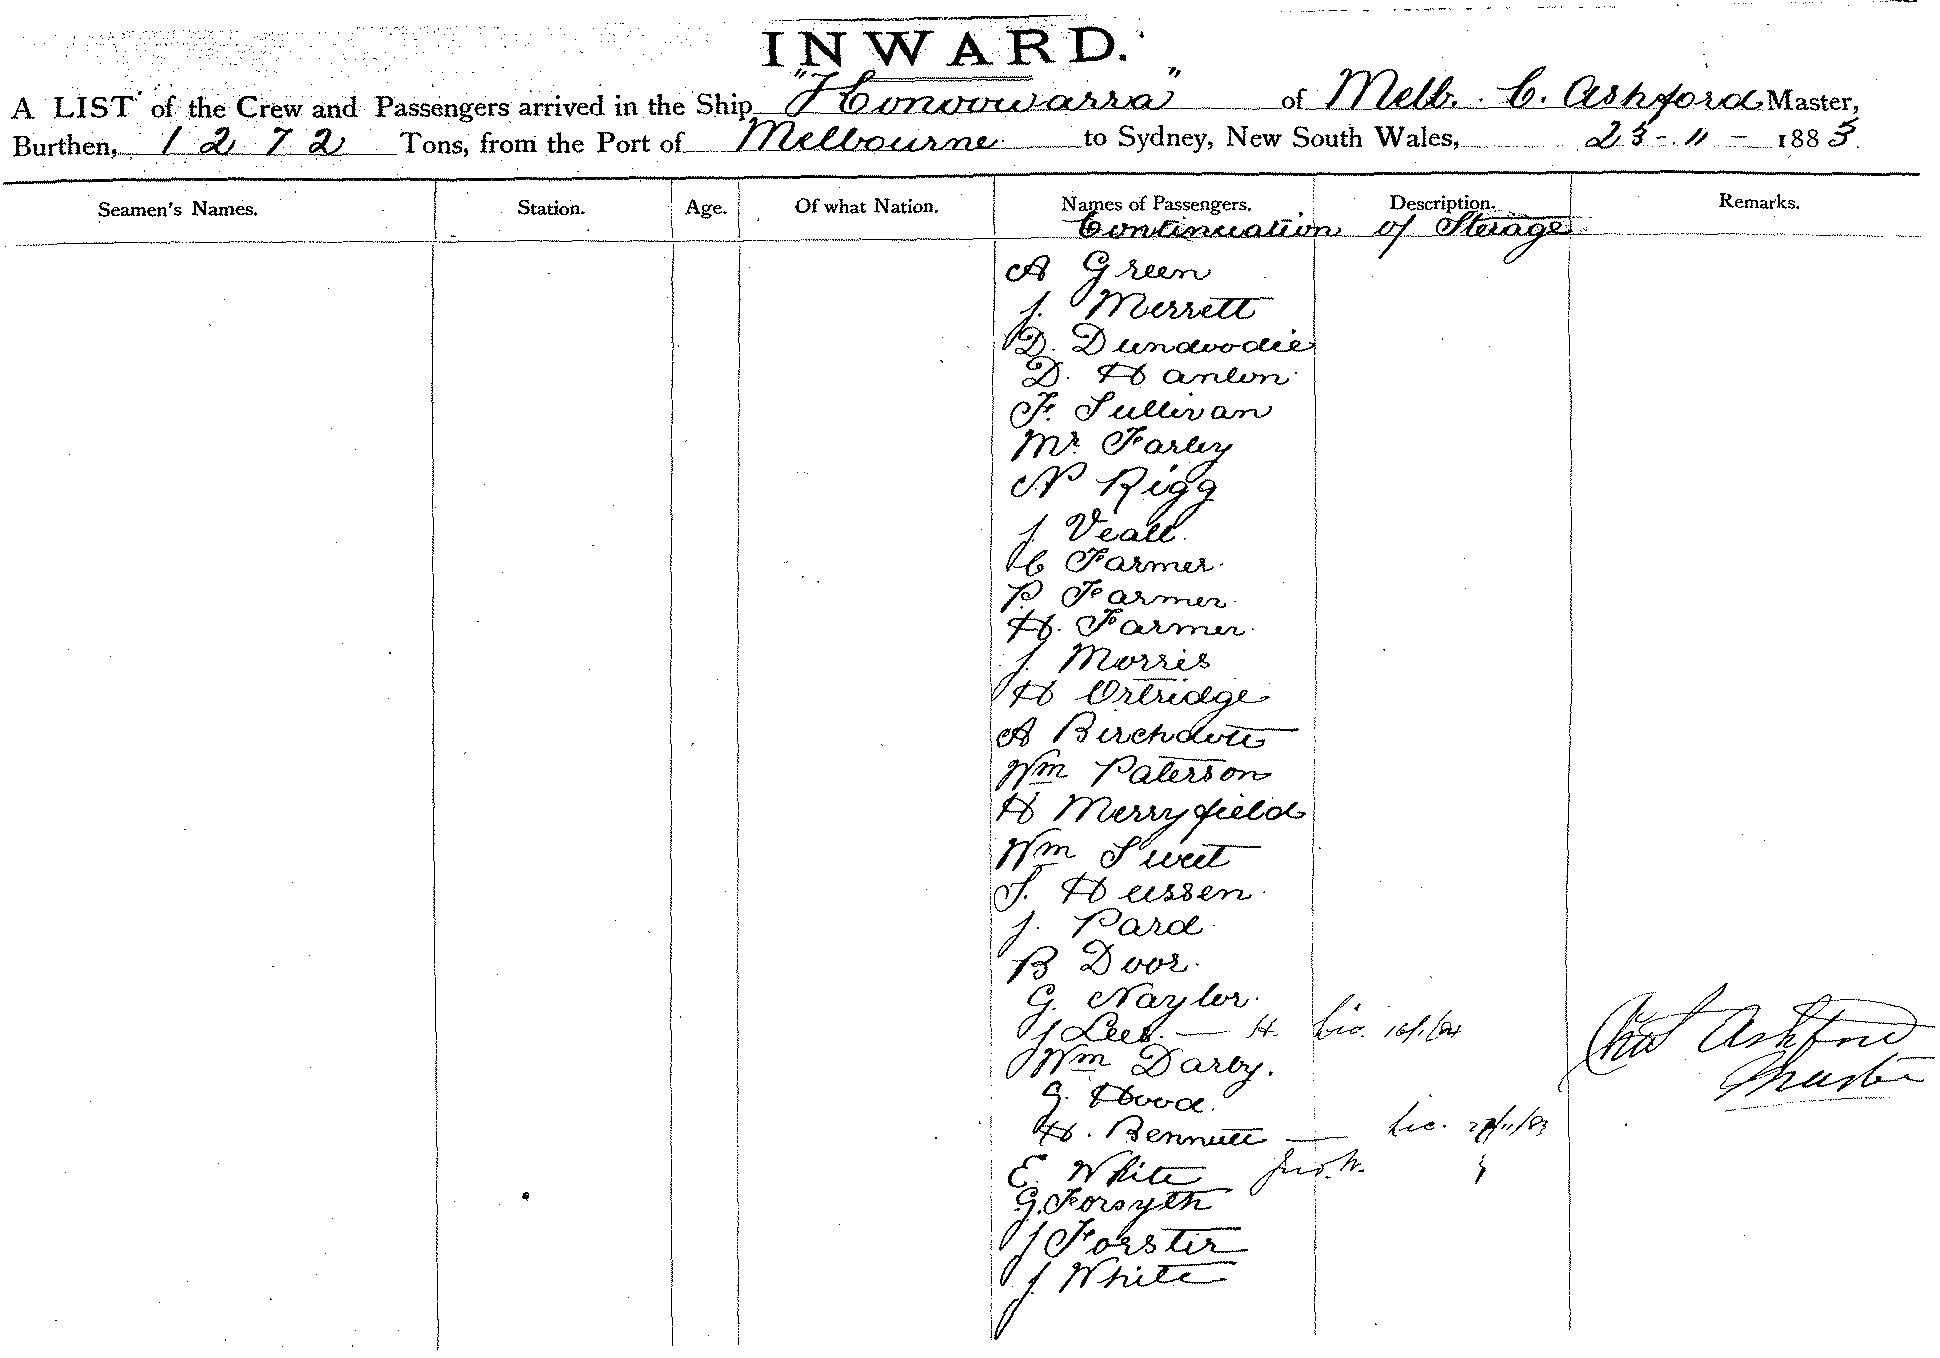 INWARD.
A LIST of the Crew and Passengers arrived in the Ship "Konoowarra" of Melb. C. Ashford Master,
Burthen, 1272 Tons, from the Port of Melbourne to Sydney, New South Wales, 23-11-1883
Seamen's Names. Station. Age. Of what Nation. Names of Passengers. Description. Remarks.
Continuation of Sterage
A Green
J. Merrett
D. Dundoodie
D. Hanlon
F. Sullivan
Mr. Farley
N Rigg
J Veall.
C Farmer.
P. Farmer.
H. Farmer.
J. Morris
H Ortridge
A
Wm Paterson
H Merryfield
Wm Sweet
S. Hussen.
J. Pard
B Door.
G. Naylor.
J Lees. — H. Lic.
Chas Ashford
Wm Darby.
Master
G. Hood.
H. Bennett — Lic. 29/11/83
E. White Jno. W. "
G. Forsyth
J Forster
J White